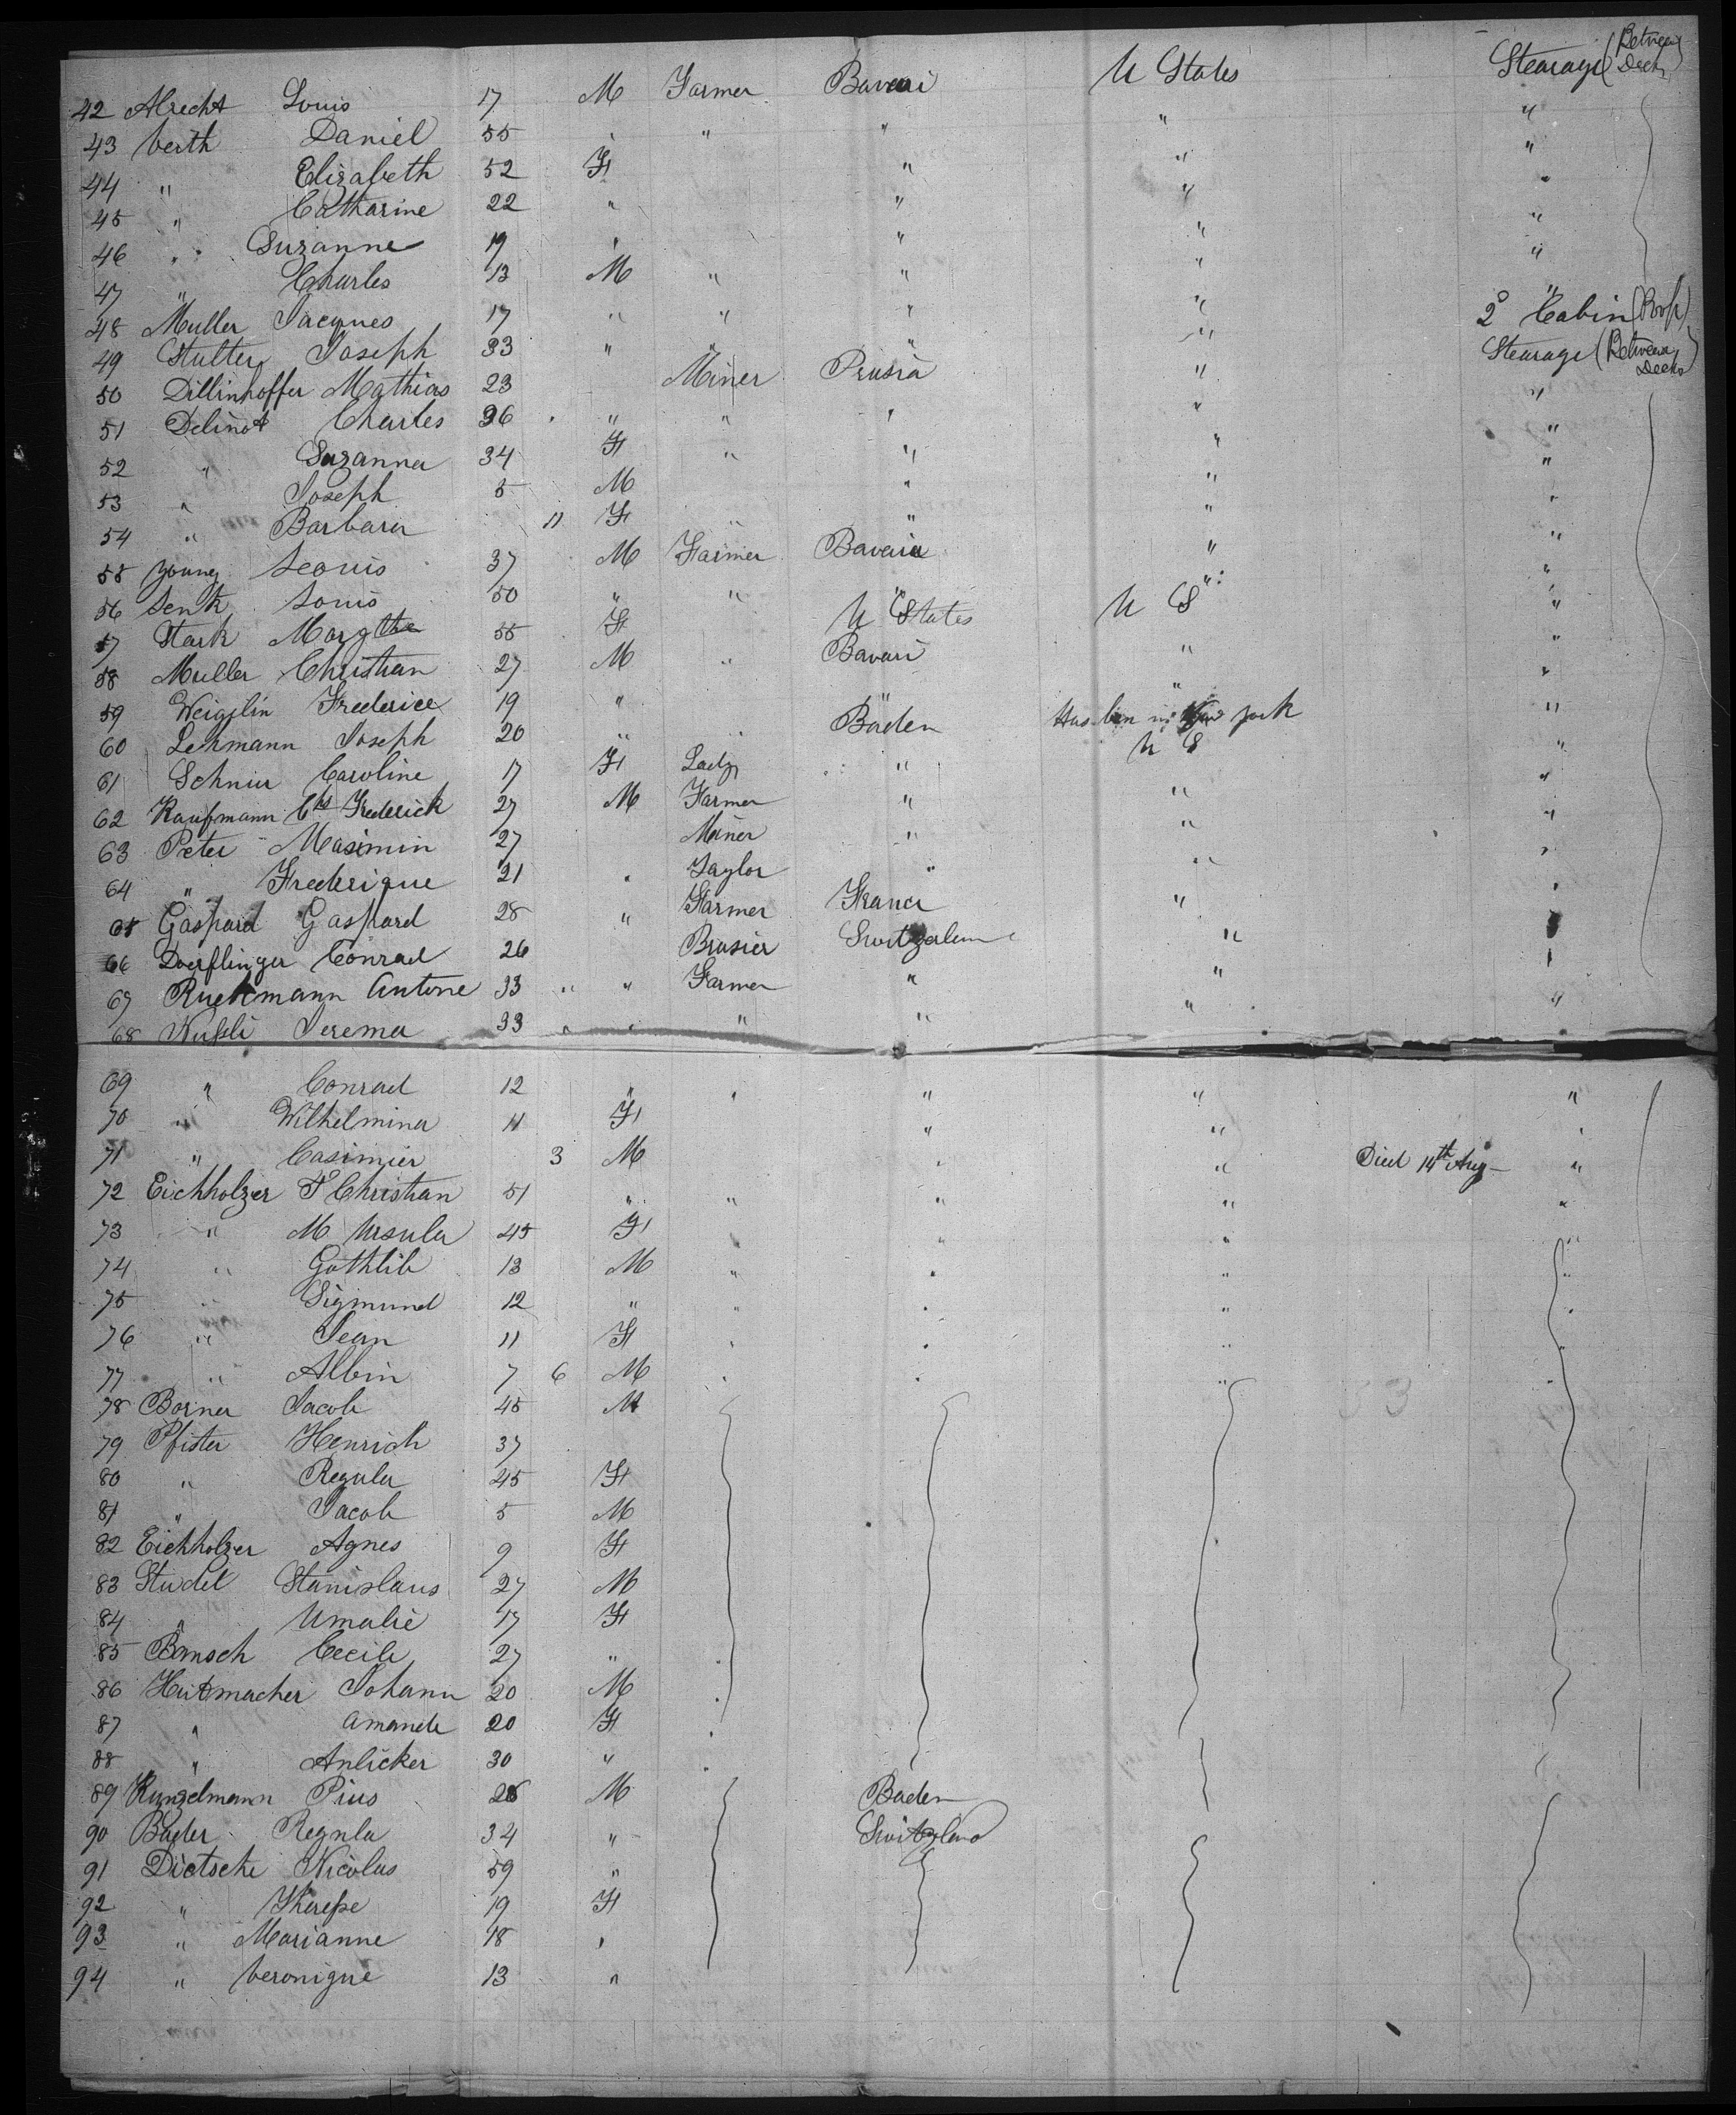 42 Alrecht Louis 17 M Farmer Bavari U States Stearage (Between Decks)
43 Verth Daniel 55 " " " " "
44 " Elizabeth 52 F " " "
45 " Catharine 22 " " " "
46 " Suzanne 19 " " " "
47 " Charles 13 M " " " "
48 Muller Jacques 17 " " " " 2° Cabin (Poop)
49 Stulter Joseph 33 " " " " Stearage (Between Decks)
50 Dillinhoffer Mathias 23 Miner Prusia " "
51 Delinot Charles 36 " " " " "
52 " Suzanna 34 F " " " "
53 " Joseph 5 M " " "
54 " Barbara 11 F " " " "
55 Young Leouis 37 M Farmer Bavaria " "
56 Lenk Louis 50 " " " " "
57 Stark Margthe 55 F U States U S "
58 Muller Christian 27 M " Bavari " "
59 Weigelin Frederice 19 " " " "
60 Lehmann Joseph 20 " " Baden Has ben in New york "
61 Schnur Caroline 17 F Lady " U S "
62 Kaufmann Chs Frederick 27 M Farmer " " "
63 Peter Maximin 27 Miner " " "
64 " Frederique 21 " Taylor " " "
65 Gaspard Gaspard 28 " Farmer France " "
66 Doerflinger Conrad 26 Brasier Switzerlem " "
67 Ruckmann Antone 33 " " Farmer " " "
68 Nussli Jerema 33 " " " " " "
69 " Conrad 12 " " " " "
70 " Wilhelmina 11 F " " "
71 " Casimier 3 M " " Died 14th Aug— "
72 Eichholzer F Christian 51 " " " " "
73 " M Ursula 45 F " " " "
74 " Gothlib 13 M " " " "
75 " Sigmund 12 " " " " "
76 " Jean 11 F " " " "
77 " Albin 7 6 M " " " "
78 Borner Jacob 45 M
79 Pfister Henrich 37
80 " Regula 45 F
81 " Jacob 5 M
82 Eichholzer Agnes 9 F
83 Studel Stanislaus 27 M
84 " Umalie 17 F
85 Bamsch Cecile 27 "
86 Hutmacher Johann 20 M
87 " Amande 20 F
88 " Anlicker 30 "
89 Kunzelmann Pius 28 M Baden
90 Bader Regula 34 " Switzland
91 Dietsche Nicolas 59 "
92 " Therese 19 F
93 " Marianne 18 "
94 " Veronique 13 "